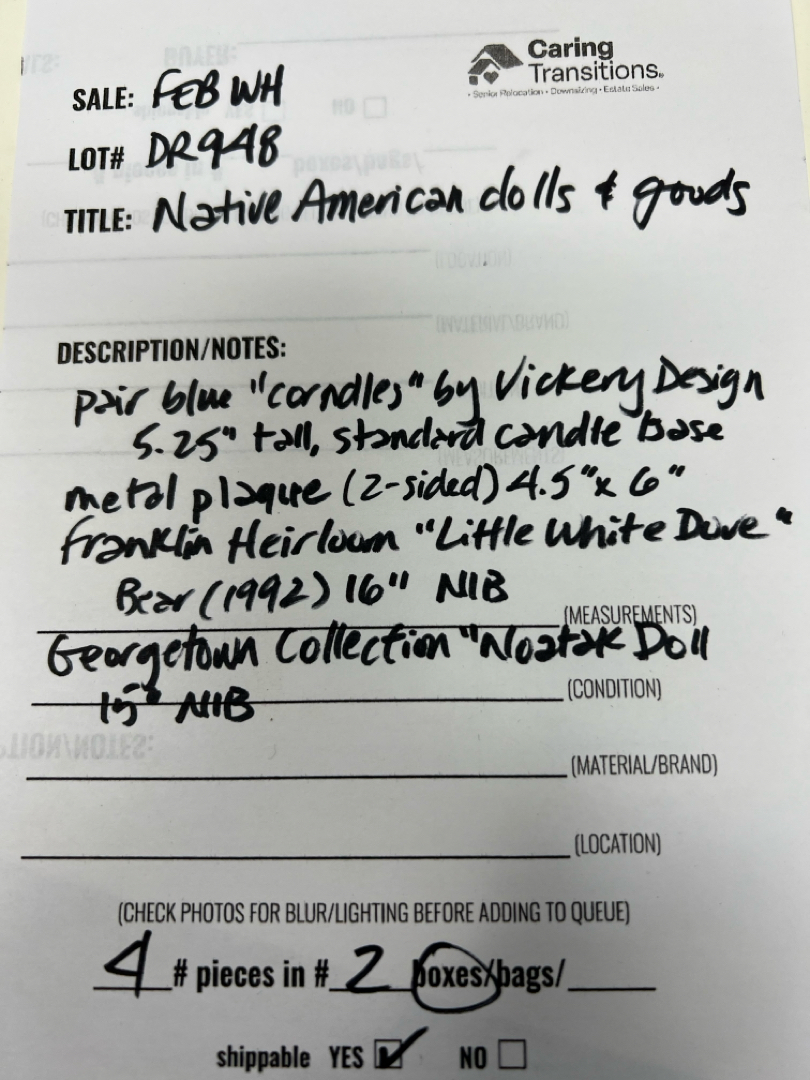 Caring
Transitions®
• Senior Relocation • Downsizing • Estate Sales •
SALE: FEB WH
LOT# DR948
TITLE: Native American dolls & goods
DESCRIPTION/NOTES:
pair blue "corndles" by Vickery Design
5.25" tall, standard candle base
metal plaque (2-sided) 4.5" x 6"
Franklin Heirloom "Little White Dove"
Bear (1992) 16" NIB
(MEASUREMENTS)
Georgetown Collection "Noatak Doll
(CONDITION)
15" NIB
(MATERIAL/BRAND)
(LOCATION)
(CHECK PHOTOS FOR BLUR/LIGHTING BEFORE ADDING TO QUEUE)
4 # pieces in # 2 boxes/bags/
shippable YES NO